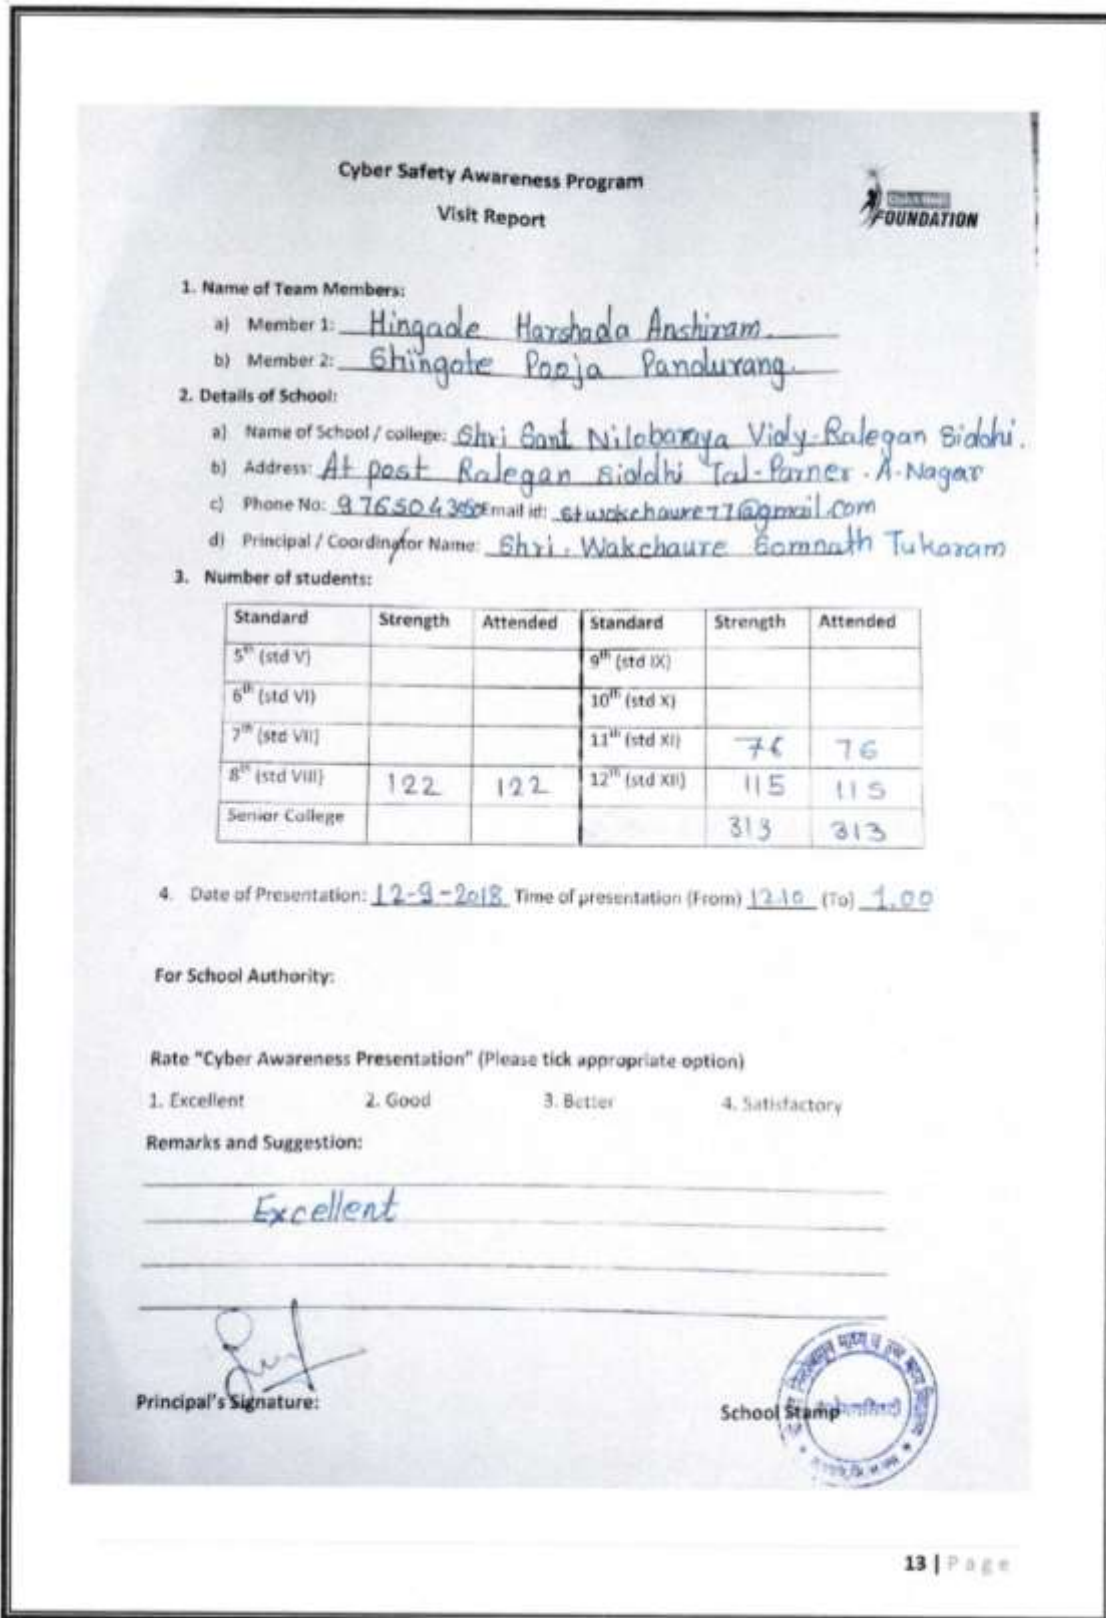 Cyber Safety Awareness Program
Visit Report
FOUNDATION
1. Name of Team Members:
a) Member 1: Hingade Harshada Anshiram.
b) Member 2: Shingote Pooja Pandurang.
2. Details of School:
a) Name of School / college: Shri Sant Nilobaraya Vidy-Ralegan Siddhi.
b) Address: At post Ralegan siddhi Tal-Parner. A.Nagar
c) Phone No: Email id: stwakchaure77@gmail.com
d) Principal / Coordinator Name: Shri. Wakchaure Somnath Tukaram
3. Number of students:
Standard Strength Attended Standard Strength Attended
5th (std V) 9th (std IX)
6th (std VI) 10th (std X)
7th (std VII) 11th (std XI) 76 76
8th (std VIII) 122 122 12th (std XII) 115 115
Senior College 313 313
4. Date of Presentation: 12-9-2018 Time of presentation (From) 12.10 (To) 1.00
For School Authority:
Rate "Cyber Awareness Presentation" (Please tick appropriate option)
1. Excellent 2. Good 3. Better 4. Satisfactory
Remarks and Suggestion:
Excellent
Principal's Signature:
School Stamp
13 | Page